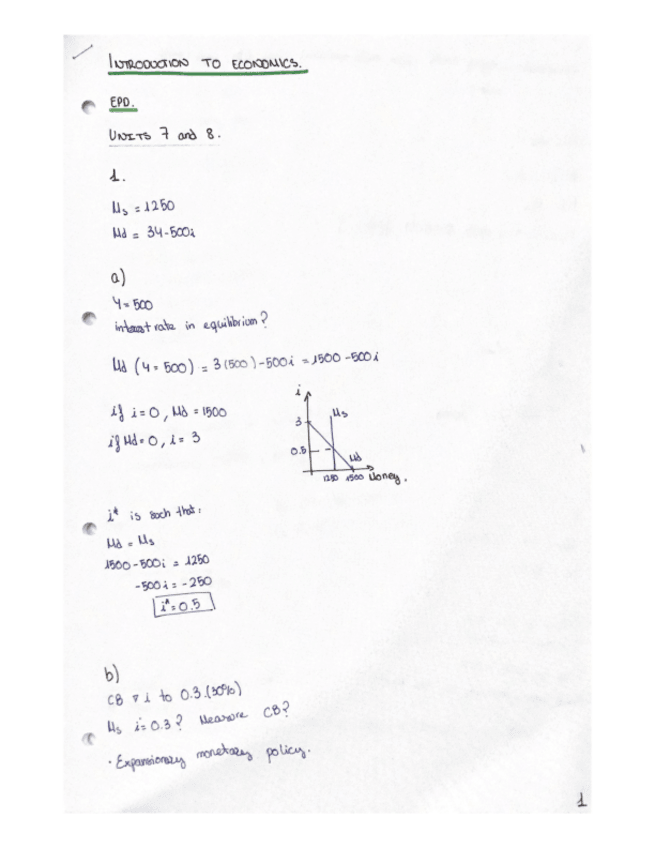 INTRODUCTION TO ECONOMICS.
EPD.
UNITS 7 and 8.
1.
Ms = 1250
Md = 3Y-500i
a)
Y = 500
interest rate in equilibrium?
Md (Y = 500) = 3(500)-500i = 1500-500i
if i=0, Md = 1500
if Md=0, i = 3
i
3
Ms
0.5
Md
1250 1500 Money.
i* is such that:
Md = Ms
1500-500i = 1250
-500i = -250
i* = 0.5
b)
CB ∇ i to 0.3.(30%)
Ms i=0.3? Measure CB?
· Expansionary monetary policy.
1